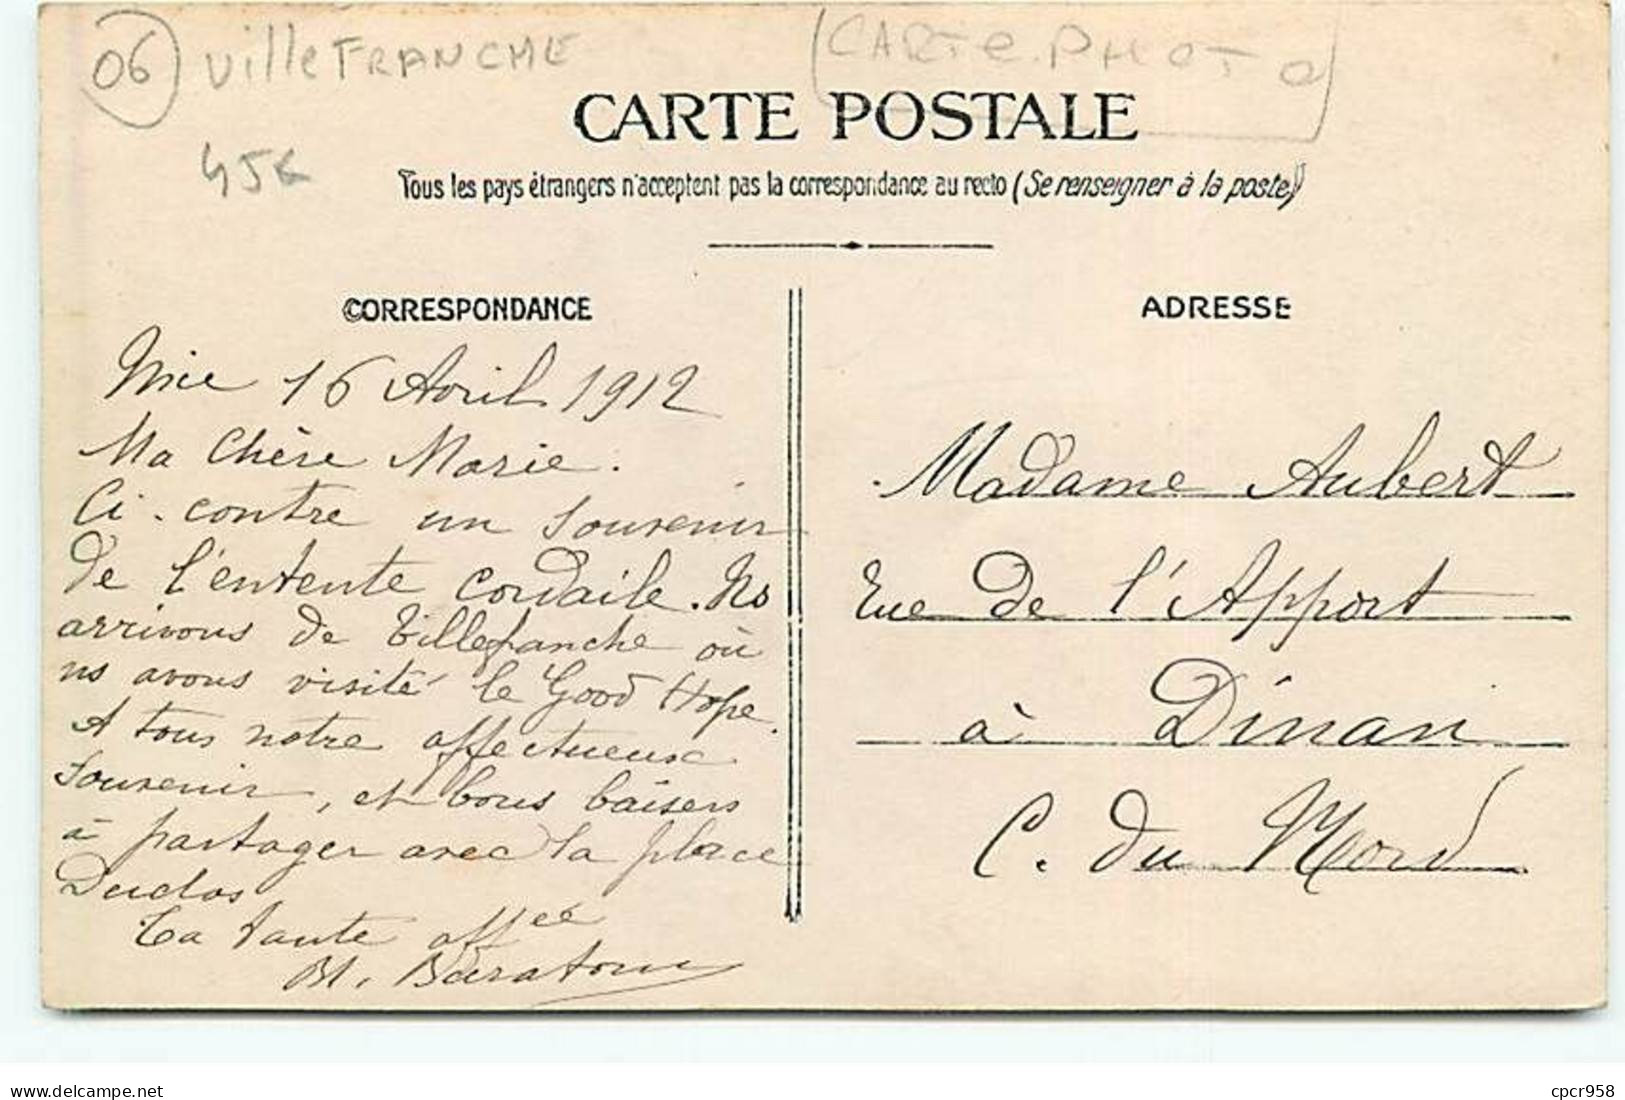 06 VilleFRANCHE
CARTE.PHOTO
45€
CARTE POSTALE
Tous les pays étrangers n'acceptent pas la correspondance au recto (Se renseigner à la poste)
CORRESPONDANCE
Nice 16 Avril 1912
Ma Chère Marie.
Ci-contre un souvenir
de l'entente Cordaile. Ns
arrivons de Villefranche où
ns avons visité le Good Hope.
A tous notre affectueux
souvenir, et bons baisers
à partager avec la place
Duclos
Ta tante affée
M. Baratoux
ADRESSE
Madame Aubert
Rue de l'Apport
à Dinan
C. du Nord
06/08/2024
cpcr958